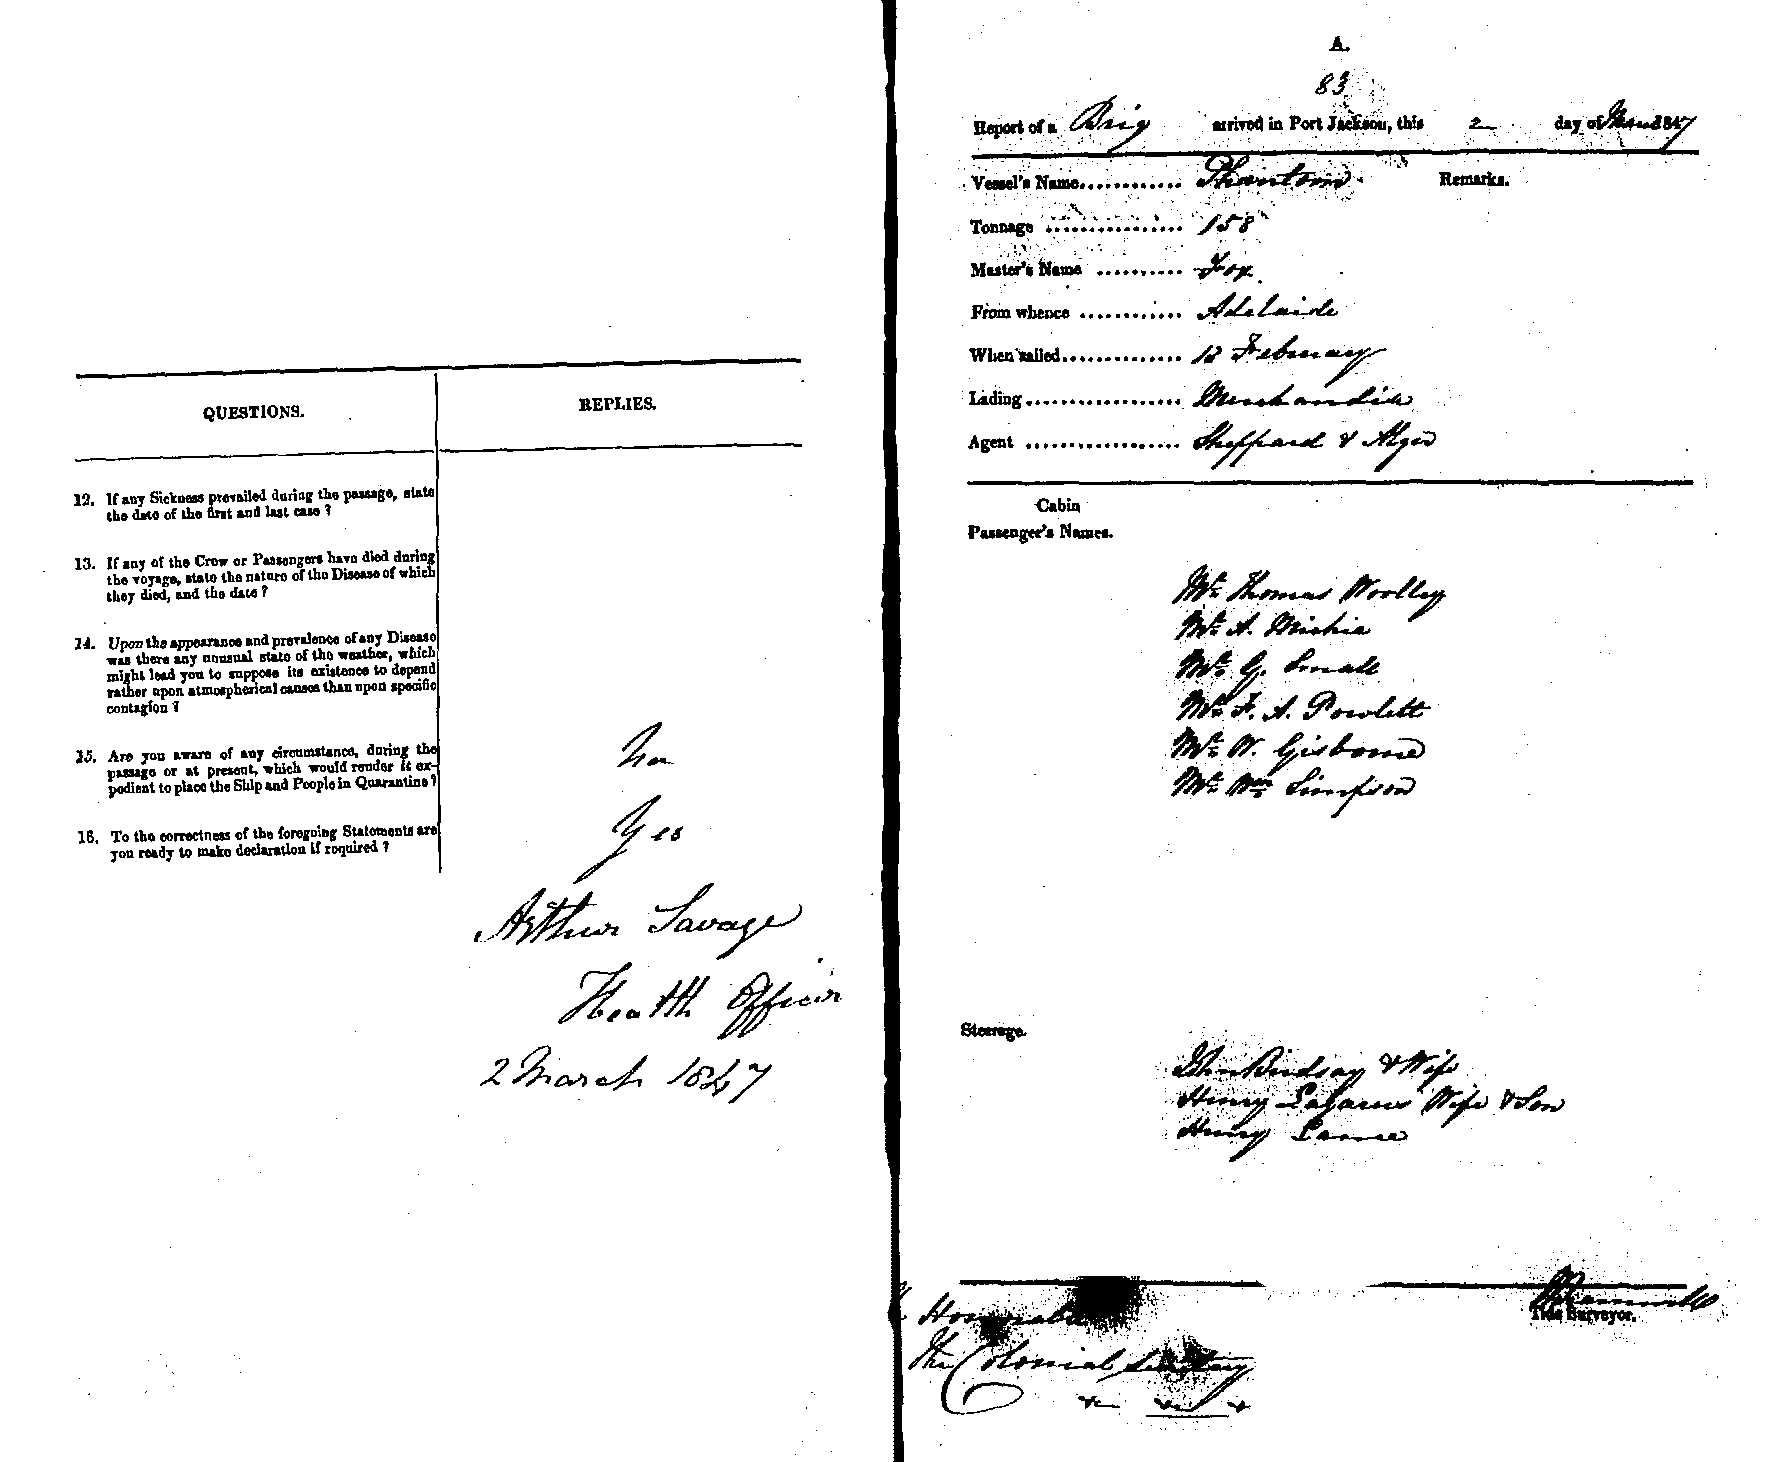 QUESTIONS.
REPLIES.
12. If any Sickness prevailed during the passage, state
the date of the first and last case ?
13. If any of the Crew or Passengers have died during
the voyage, state the nature of the Disease of which
they died, and the date ?
14. Upon the appearance and prevalence of any Disease
was there any unusual state of the weather, which
might lead you to suppose its existence to depend
rather upon atmospherical causes than upon specific
contagion ?
15. Are you aware of any circumstance, during the
passage or at present, which would render it ex-
pedient to place the Ship and People in Quarantine ?
No
16. To the correctness of the foregoing Statements are
you ready to make declaration if required ?
Yes
Arthur Savage
Health Officer
2 March 1847
A.
83
Report of a Brig arrived in Port Jackson, this 2 day of March 1847
Vessel's Name............ Phantom Remarks.
Tonnage ................ 158
Master's Name .......... Fox
From whence ............ Adelaide
When sailed.............. 12 February
Lading.................. Merchandise
Agent .................. Sheppard & Alger
Cabin
Passenger's Names.
Mr. Thomas Woolley
Mr. A. Michie
Mr. G. Small
Mr. F. A. Powlett
Mr. W. Gisborne
Mr. Wm. Simpson
Steerage.
John Lindsay & Wife
Henry Lazarus Wife & Son
Henry
Honorable
The Colonial Secretary
Tide Surveyor.